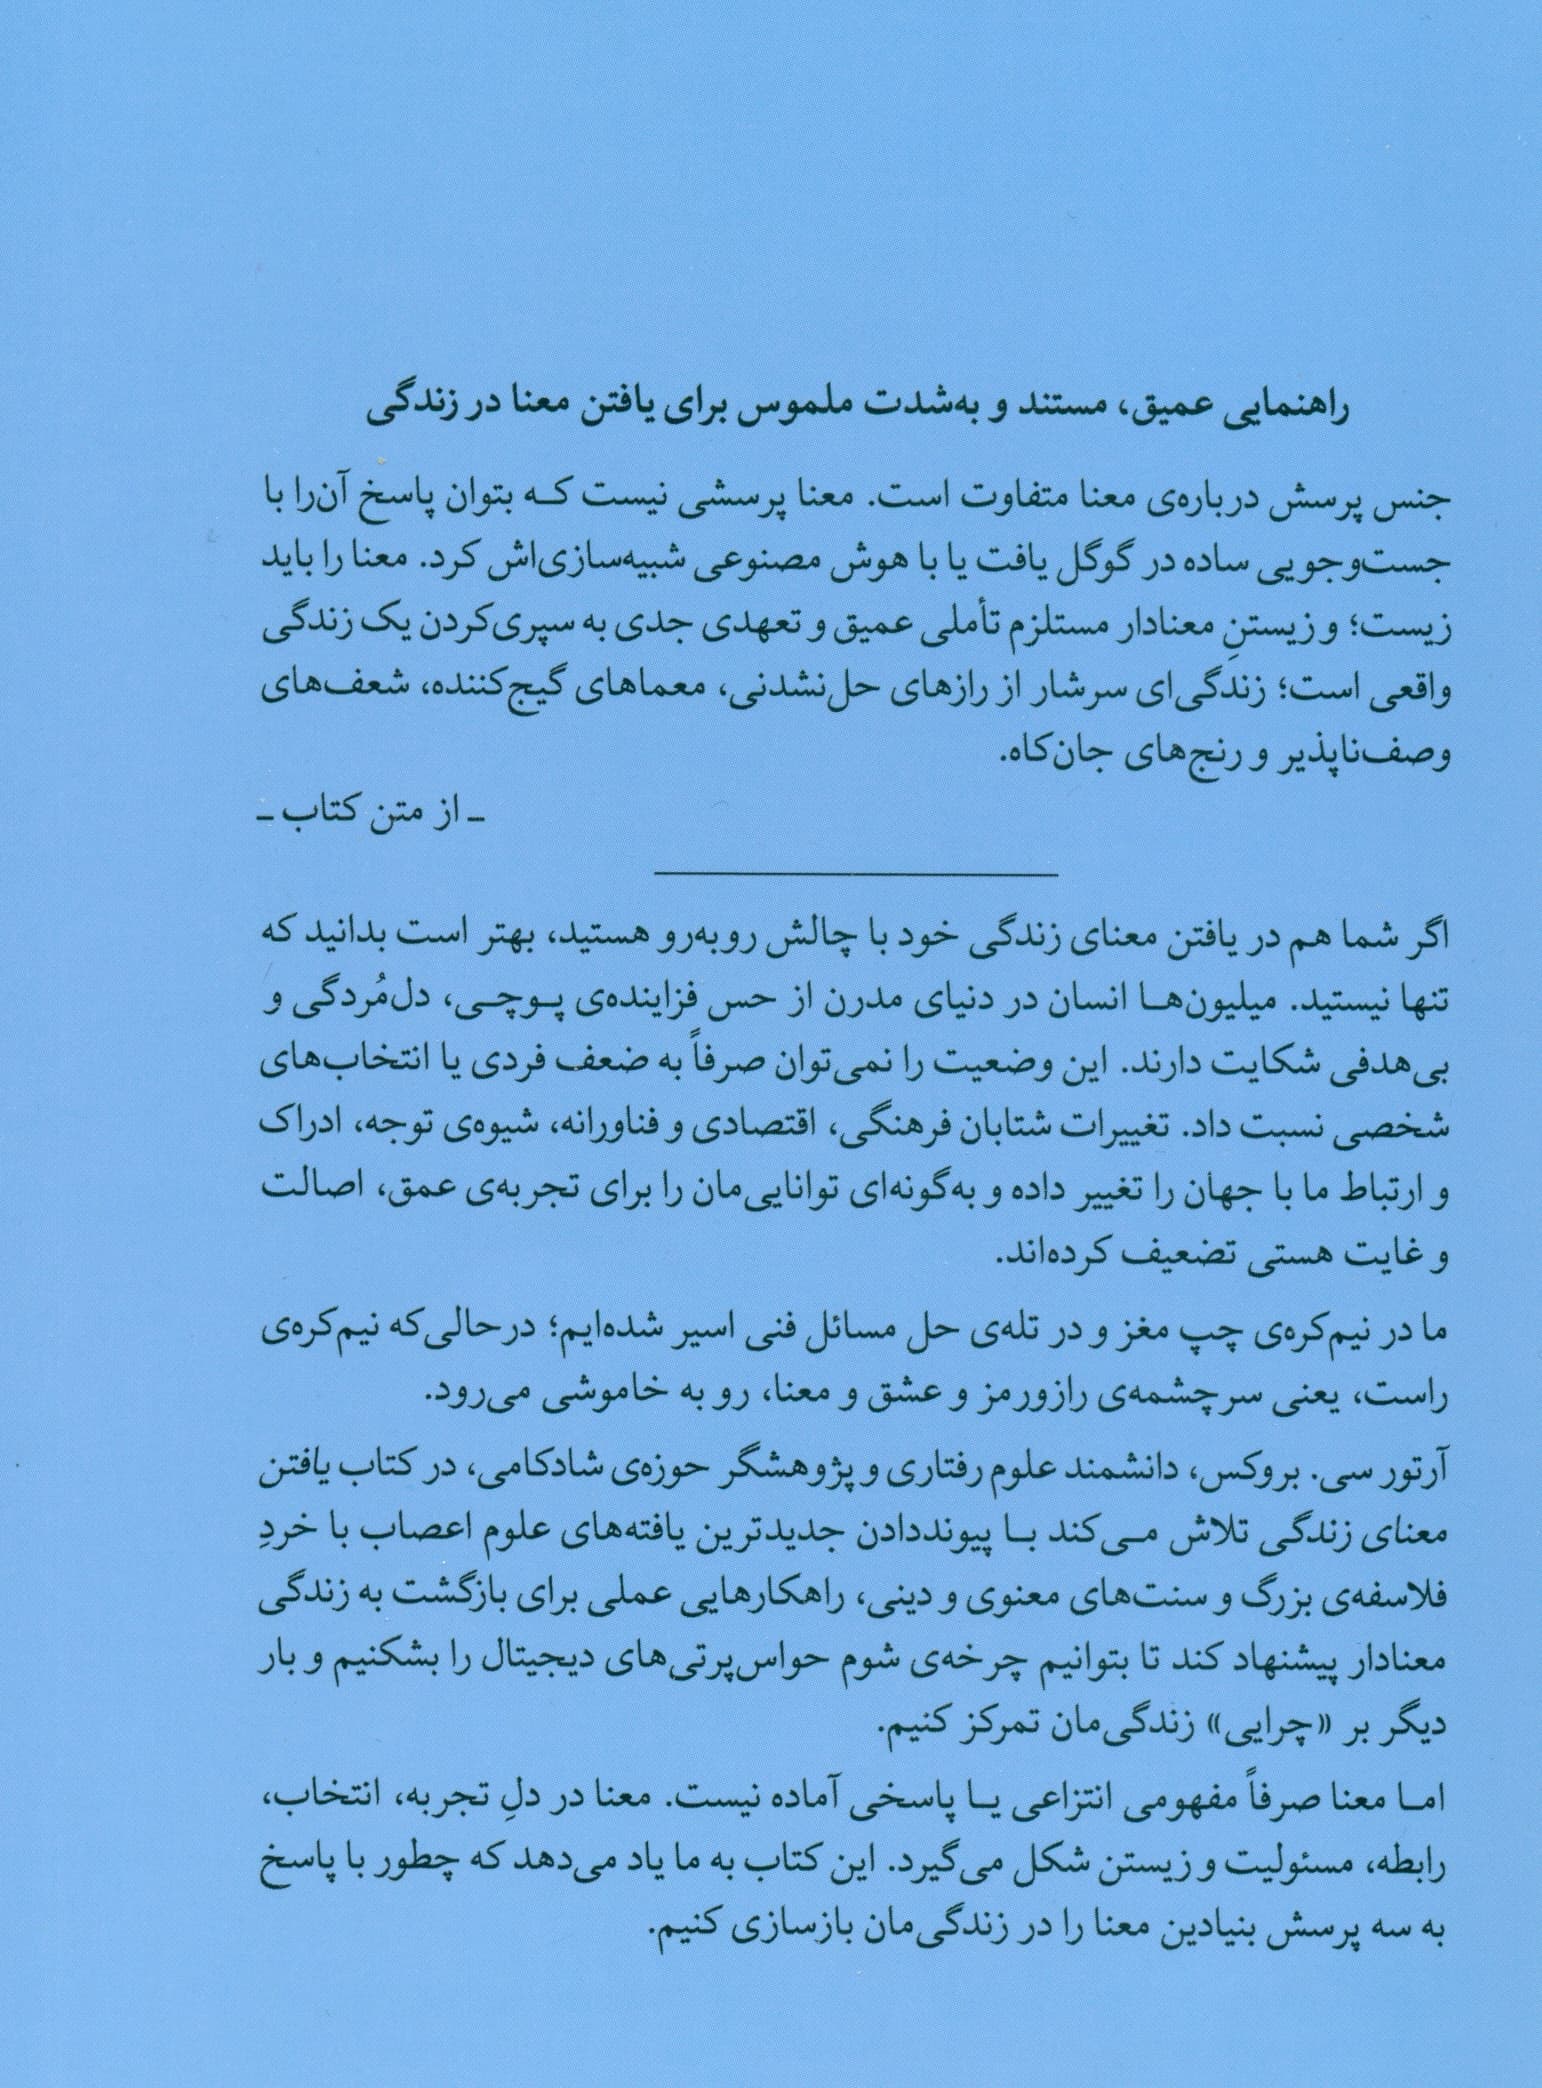 راهنمایی عمیق، مستند و به‌شدت ملموس برای یافتن معنا در زندگی
جنس پرسش درباره‌ی معنا متفاوت است. معنا پرسشی نیست که بتوان پاسخ آن‌را با
جست‌وجویی ساده در گوگل یافت یا با هوش مصنوعی شبیه‌سازی‌اش کرد. معنا را باید
زیست؛ و زیستنِ معنادار مستلزم تأملی عمیق و تعهدی جدی به سپری‌کردن یک زندگی
واقعی است؛ زندگی‌ای سرشار از رازهای حل‌نشدنی، معماهای گیج‌کننده، شعف‌های
وصف‌ناپذیر و رنج‌های جان‌کاه.
ـ از متن کتاب ـ
اگر شما هم در یافتن معنای زندگی خود با چالش روبه‌رو هستید، بهتر است بدانید که
تنها نیستید. میلیون‌ها انسان در دنیای مدرن از حس فزاینده‌ی پوچی، دل‌مُردگی و
بی‌هدفی شکایت دارند. این وضعیت را نمی‌توان صرفاً به ضعف فردی یا انتخاب‌های
شخصی نسبت داد. تغییرات شتابان فرهنگی، اقتصادی و فناورانه، شیوه‌ی توجه، ادراک
و ارتباط ما با جهان را تغییر داده و به‌گونه‌ای توانایی‌مان را برای تجربه‌ی عمق، اصالت
و غایت هستی تضعیف کرده‌اند.
ما در نیم‌کره‌ی چپ مغز و در تله‌ی حل مسائل فنی اسیر شده‌ایم؛ درحالی‌که نیم‌کره‌ی
راست، یعنی سرچشمه‌ی رازورمز و عشق و معنا، رو به خاموشی می‌رود.
آرتور سی. بروکس، دانشمند علوم رفتاری و پژوهشگر حوزه‌ی شادکامی، در کتاب یافتن
معنای زندگی تلاش می‌کند با پیونددادن جدیدترین یافته‌های علوم اعصاب با خردِ
فلاسفه‌ی بزرگ و سنت‌های معنوی و دینی، راهکارهایی عملی برای بازگشت به زندگی
معنادار پیشنهاد کند تا بتوانیم چرخه‌ی شوم حواس‌پرتی‌های دیجیتال را بشکنیم و بار
دیگر بر «چرایی» زندگی‌مان تمرکز کنیم.
اما معنا صرفاً مفهومی انتزاعی یا پاسخی آماده نیست. معنا در دلِ تجربه، انتخاب،
رابطه، مسئولیت و زیستن شکل می‌گیرد. این کتاب به ما یاد می‌دهد که چطور با پاسخ
به سه پرسش بنیادین معنا را در زندگی‌مان بازسازی کنیم.